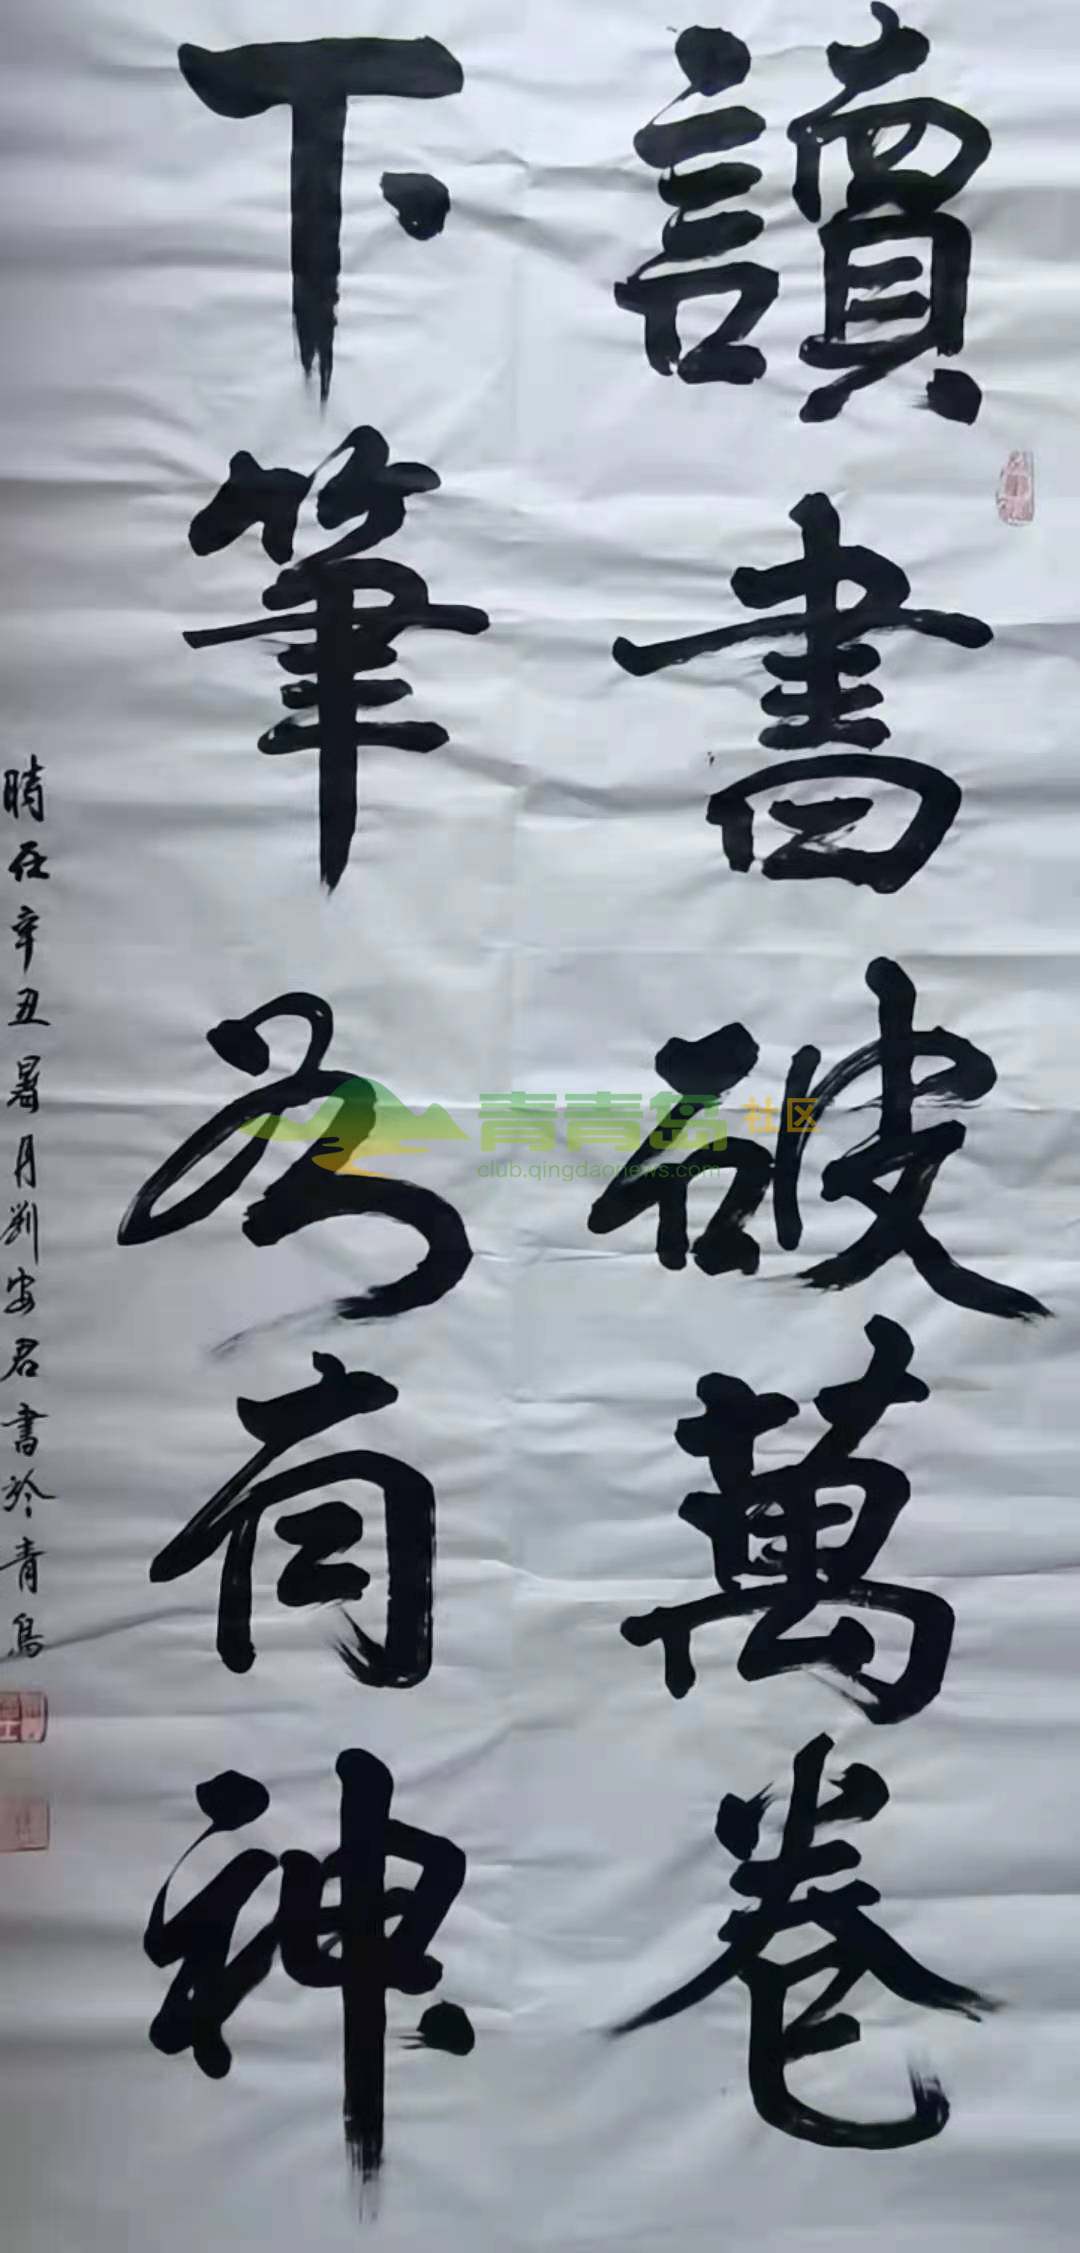 讀書破萬卷
下筆如有神
時在辛丑暑月劉安君書於青島
青青岛社区
club.qingdaonews.com